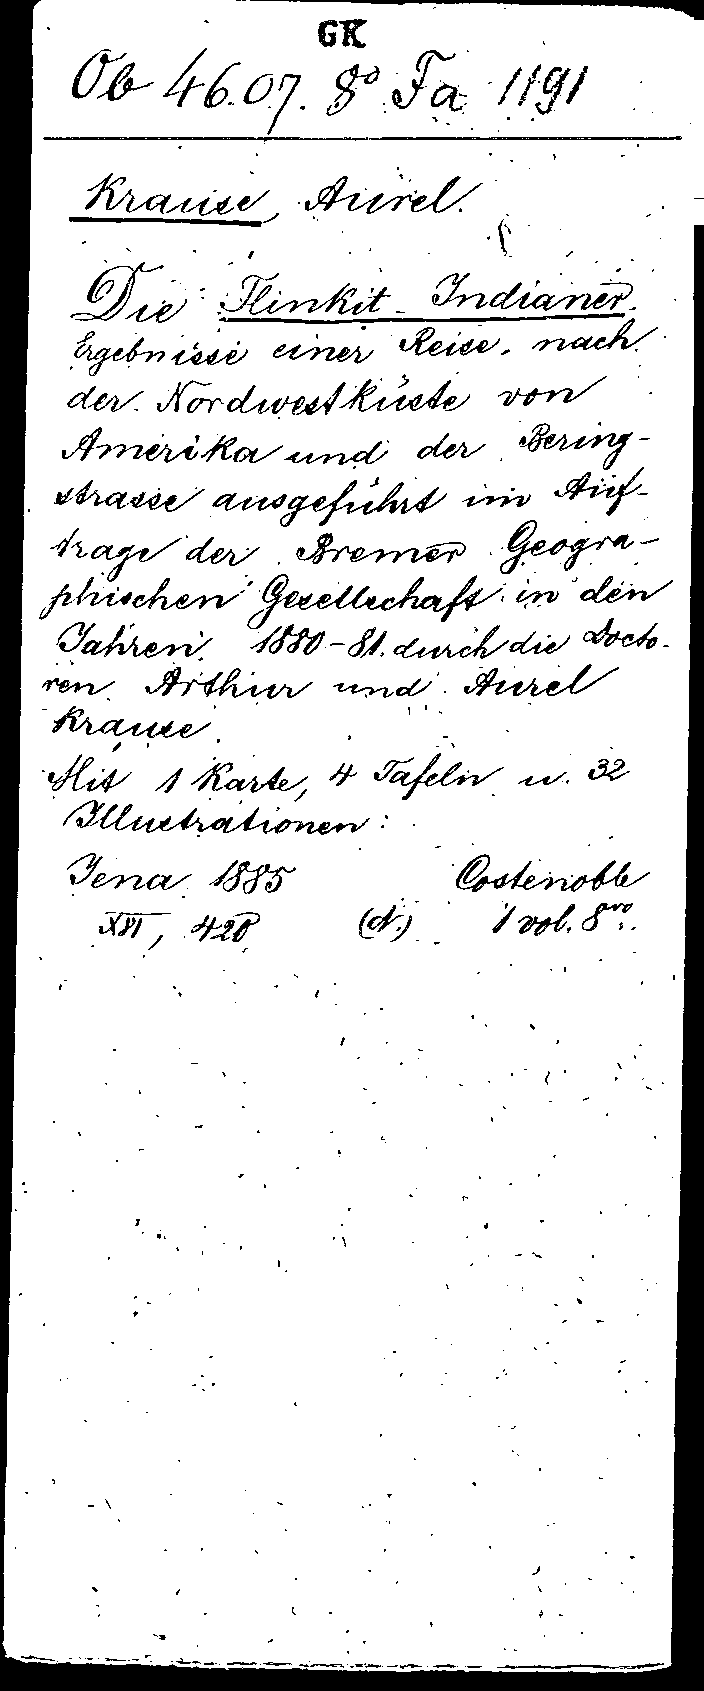 GK
Ob 46.07. 8° Fa 1191
Krause, Aurel.
Die Tlinkit-Indianer.
Ergebnisse einer Reise nach
der Nordwestküste von
Amerika und der Bering-
strasse ausgeführt im Auf-
trage der Bremer Geogra-
phischen Gesellschaft in den
Jahren 1880-81. durch die Docto-
ren Arthur und Aurel
Krause
Mit 1 Karte, 4 Tafeln u. 32
Illustrationen:
Jena 1885 Costenoble
XVI, 420 (N.) 1 vol. 8vo.